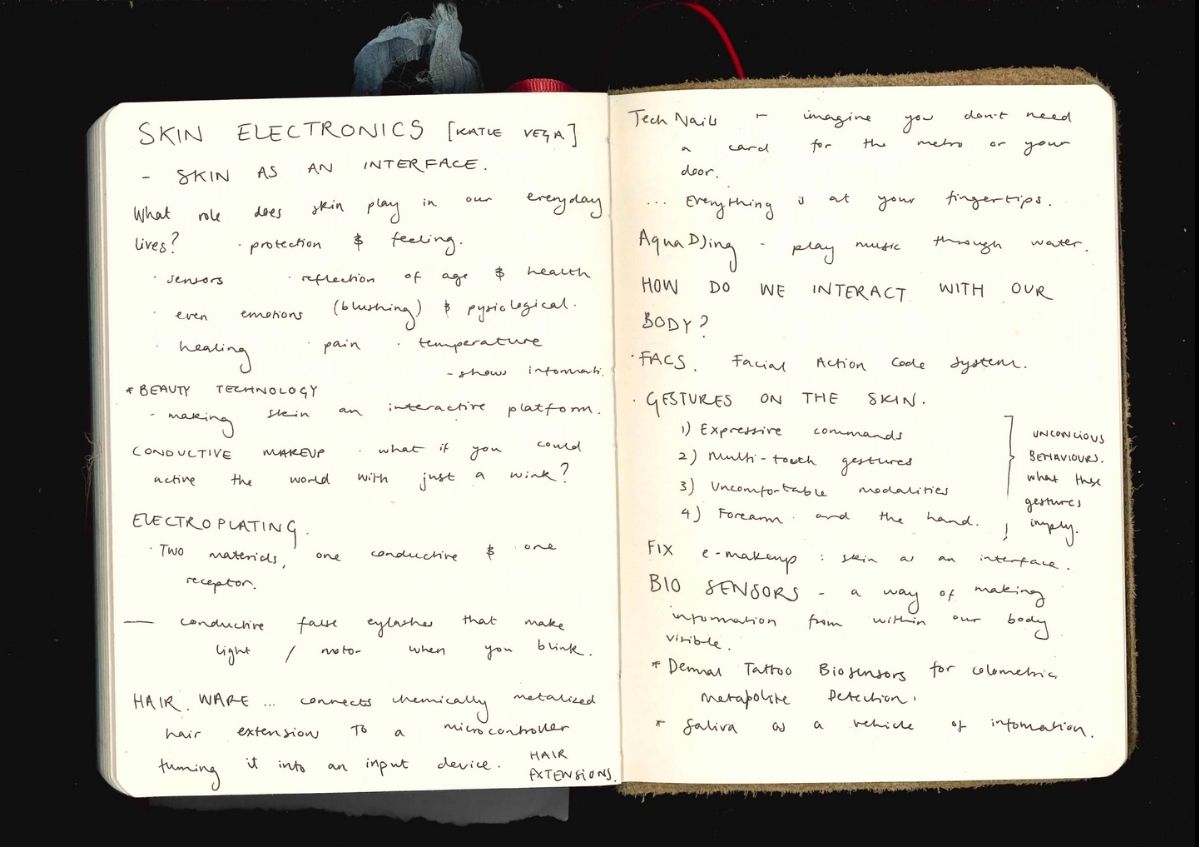 SKIN ELECTRONICS [KATIE VEGA]
- SKIN AS AN INTERFACE.
What role does skin play in our everyday
lives? · protection & feeling.
· sensors · reflection of age & health
· even emotions (blushing) & pysiological.
· healing · pain · temperature
- show informati.
* BEAUTY TECHNOLOGY
- making skin an interactive platform.
CONDUCTIVE MAKEUP · what if you could
active the world with just a wink?
ELECTROPLATING.
· Two materials, one conductive & one
receptor.
— conductive false eylashes that make
light / motor when you blink.
HAIR. WARE ... connects chemically metalized
hair extension to a microcontroller
turning it into an input device. HAIR
EXTENSIONS.
Tech Nails - imagine you don't need
a card for the metro or your
door.
... Everything is at your fingertips.
Aqua DJing - play music through water.
HOW DO WE INTERACT WITH OUR
BODY?
· FACS. Facial Action Code System.
· GESTURES ON THE SKIN.
1) Expressive commands
2) Multi-touch gestures
3) Uncomfortable modalities
4) Forearm and the hand.
UNCONCIOUS
BEHAVIOURS.
what these
gestures
imply.
FIX e-makeup : skin as an interface.
BIO SENSORS - a way of making
information from within our body
visible.
* Dermal Tattoo Biosensors for colometric
Metabolite Detection.
* Saliva as a vehicle of information.